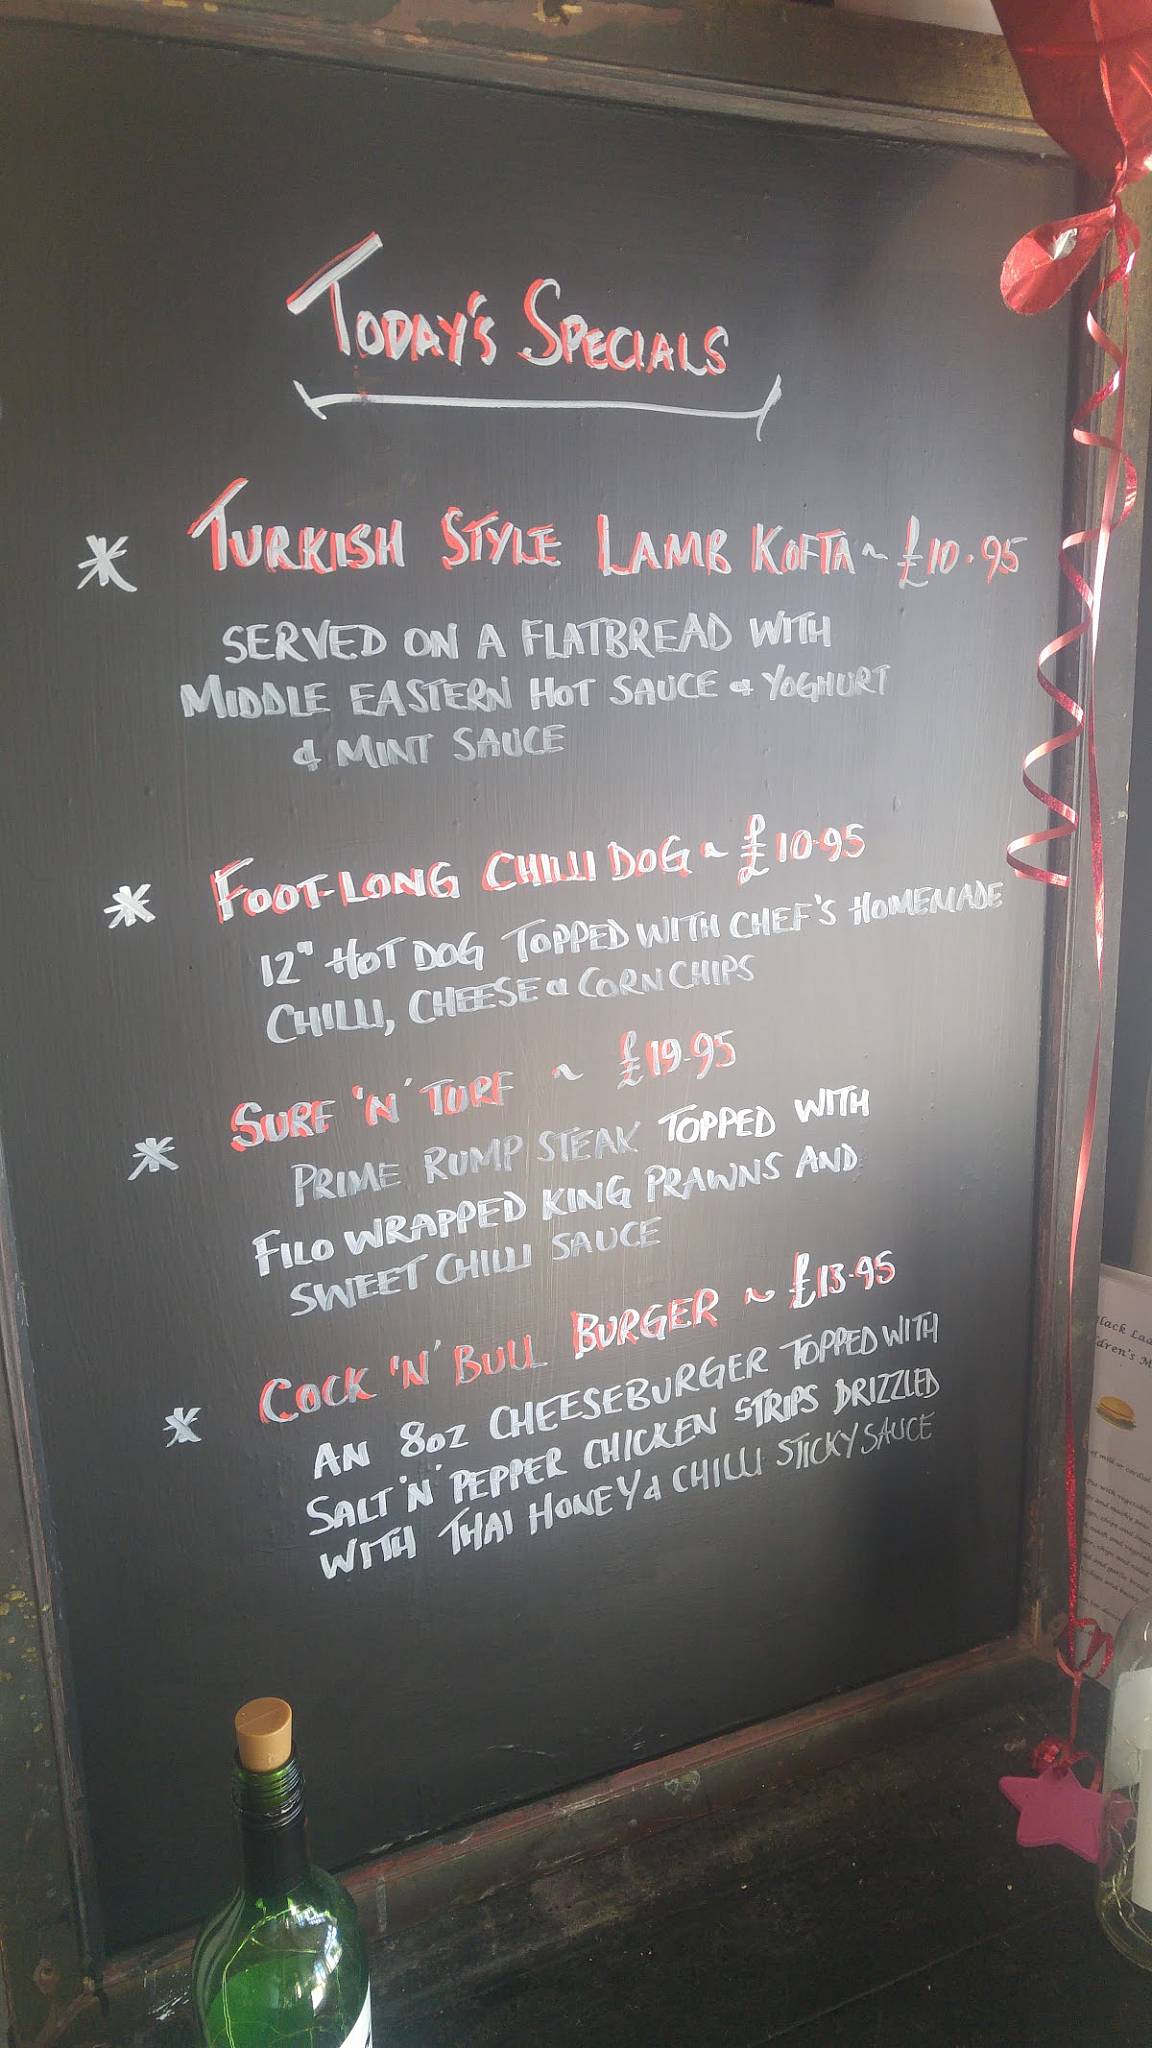 TODAY'S SPECIALS
* TURKISH STYLE LAMB KOFTA ~ £10.95
SERVED ON A FLATBREAD WITH
MIDDLE EASTERN HOT SAUCE & YOGHURT
& MINT SAUCE
* FOOT-LONG CHILLI DOG ~ £10.95
12" HOT DOG TOPPED WITH CHEF'S HOMEMADE
CHILLI, CHEESE & CORN CHIPS
* SURF 'N' TURF ~ £19.95
PRIME RUMP STEAK TOPPED WITH
FILO WRAPPED KING PRAWNS AND
SWEET CHILLI SAUCE
* COCK 'N' BULL BURGER ~ £13.95
AN 8OZ CHEESEBURGER TOPPED WITH
SALT 'N' PEPPER CHICKEN STRIPS DRIZZLED
WITH THAI HONEY & CHILLI STICKY SAUCE